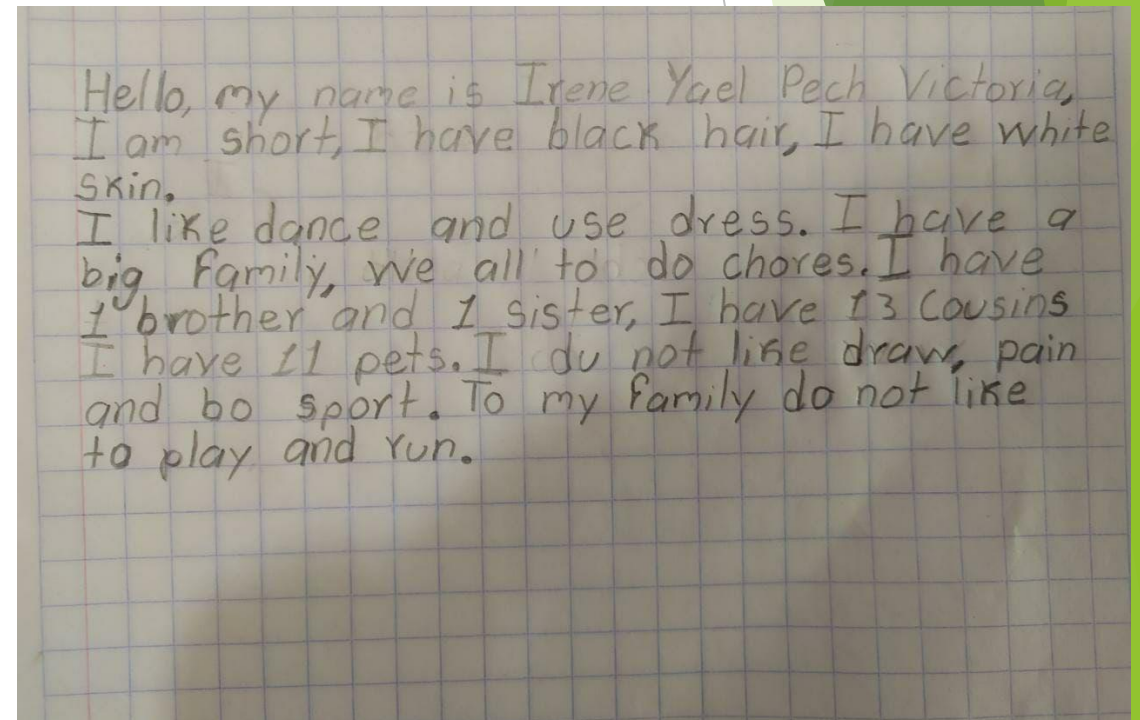 Hello, my name is Irene Yael Pech Victoria,
I am short, I have black hair, I have white
skin.
I like dance and use dress. I have a
big family, we all to do chores. I have
1 brother and 1 sister, I have 13 cousins
I have 11 pets. I du not like draw, pain
and bo sport. To my family do not like
to play and run.